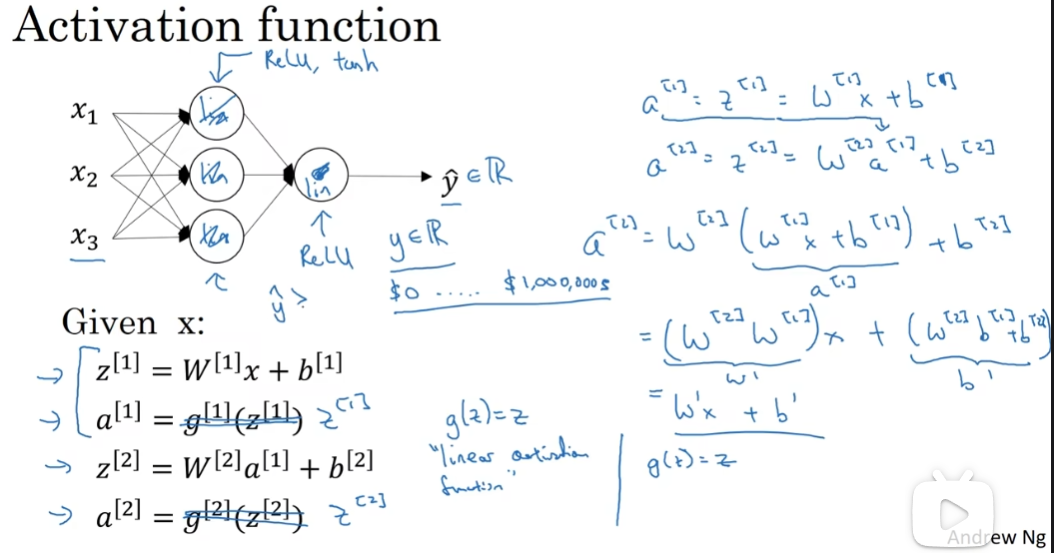 Activation function
ReLU, tanh
x₁
x₂
x₃
lin
ŷ ∈ ℝ
ReLU
y ∈ ℝ
$0 ..... $1,000,000s
ŷ ≥
Given x:
→ z[1] = W[1]x + b[1]
→ a[1] = g[1](z[1]) z[1]
→ z[2] = W[2]a[1] + b[2]
→ a[2] = g[2](z[2]) z[2]
g(z) = z
"linear activation
function"
a[1] = z[1] = W[1]x + b[1]
a[2] = z[2] = W[2]a[1] + b[2]
a[2] = W[2](W[1]x + b[1]) + b[2]
a[1]
= (W[2]W[1])x + (W[2]b[1] + b[2])
W' b'
= W'x + b'
g(z) = z
Andrew Ng